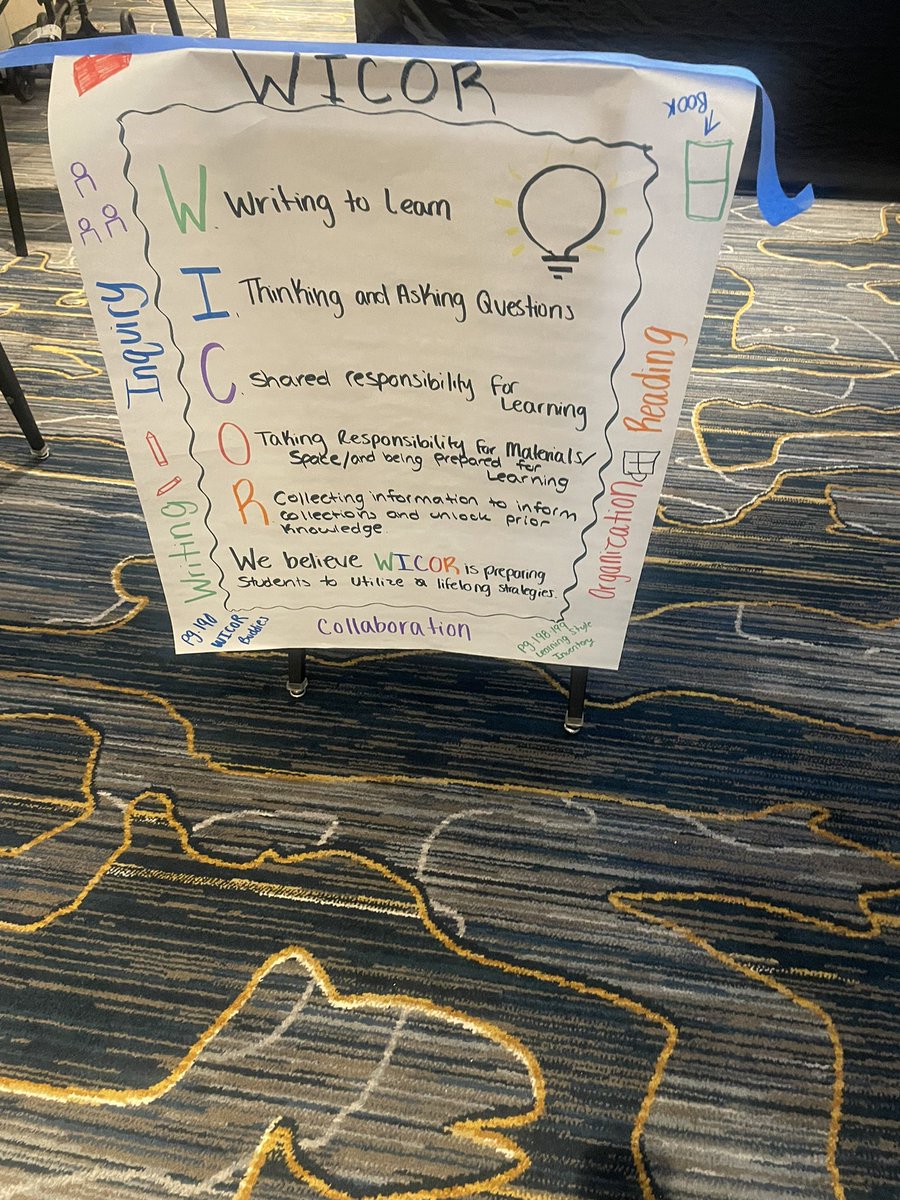 WICOR
BOOK
W. Writing to Learn
I. Thinking and Asking Questions
C. Shared responsibility for
Learning
O Taking Responsibility for Materials/
Space/and being prepared for
Learning
R. Collecting information to inform
collections and unlock prior
knowledge.
We believe WICOR is preparing
Students to utilize & lifelong strategies.
Inquiry
Writing
Reading
Organization
Collaboration
pg. 190
WICOR
Buddies
pg. 198-199
Learning Style
Inventory